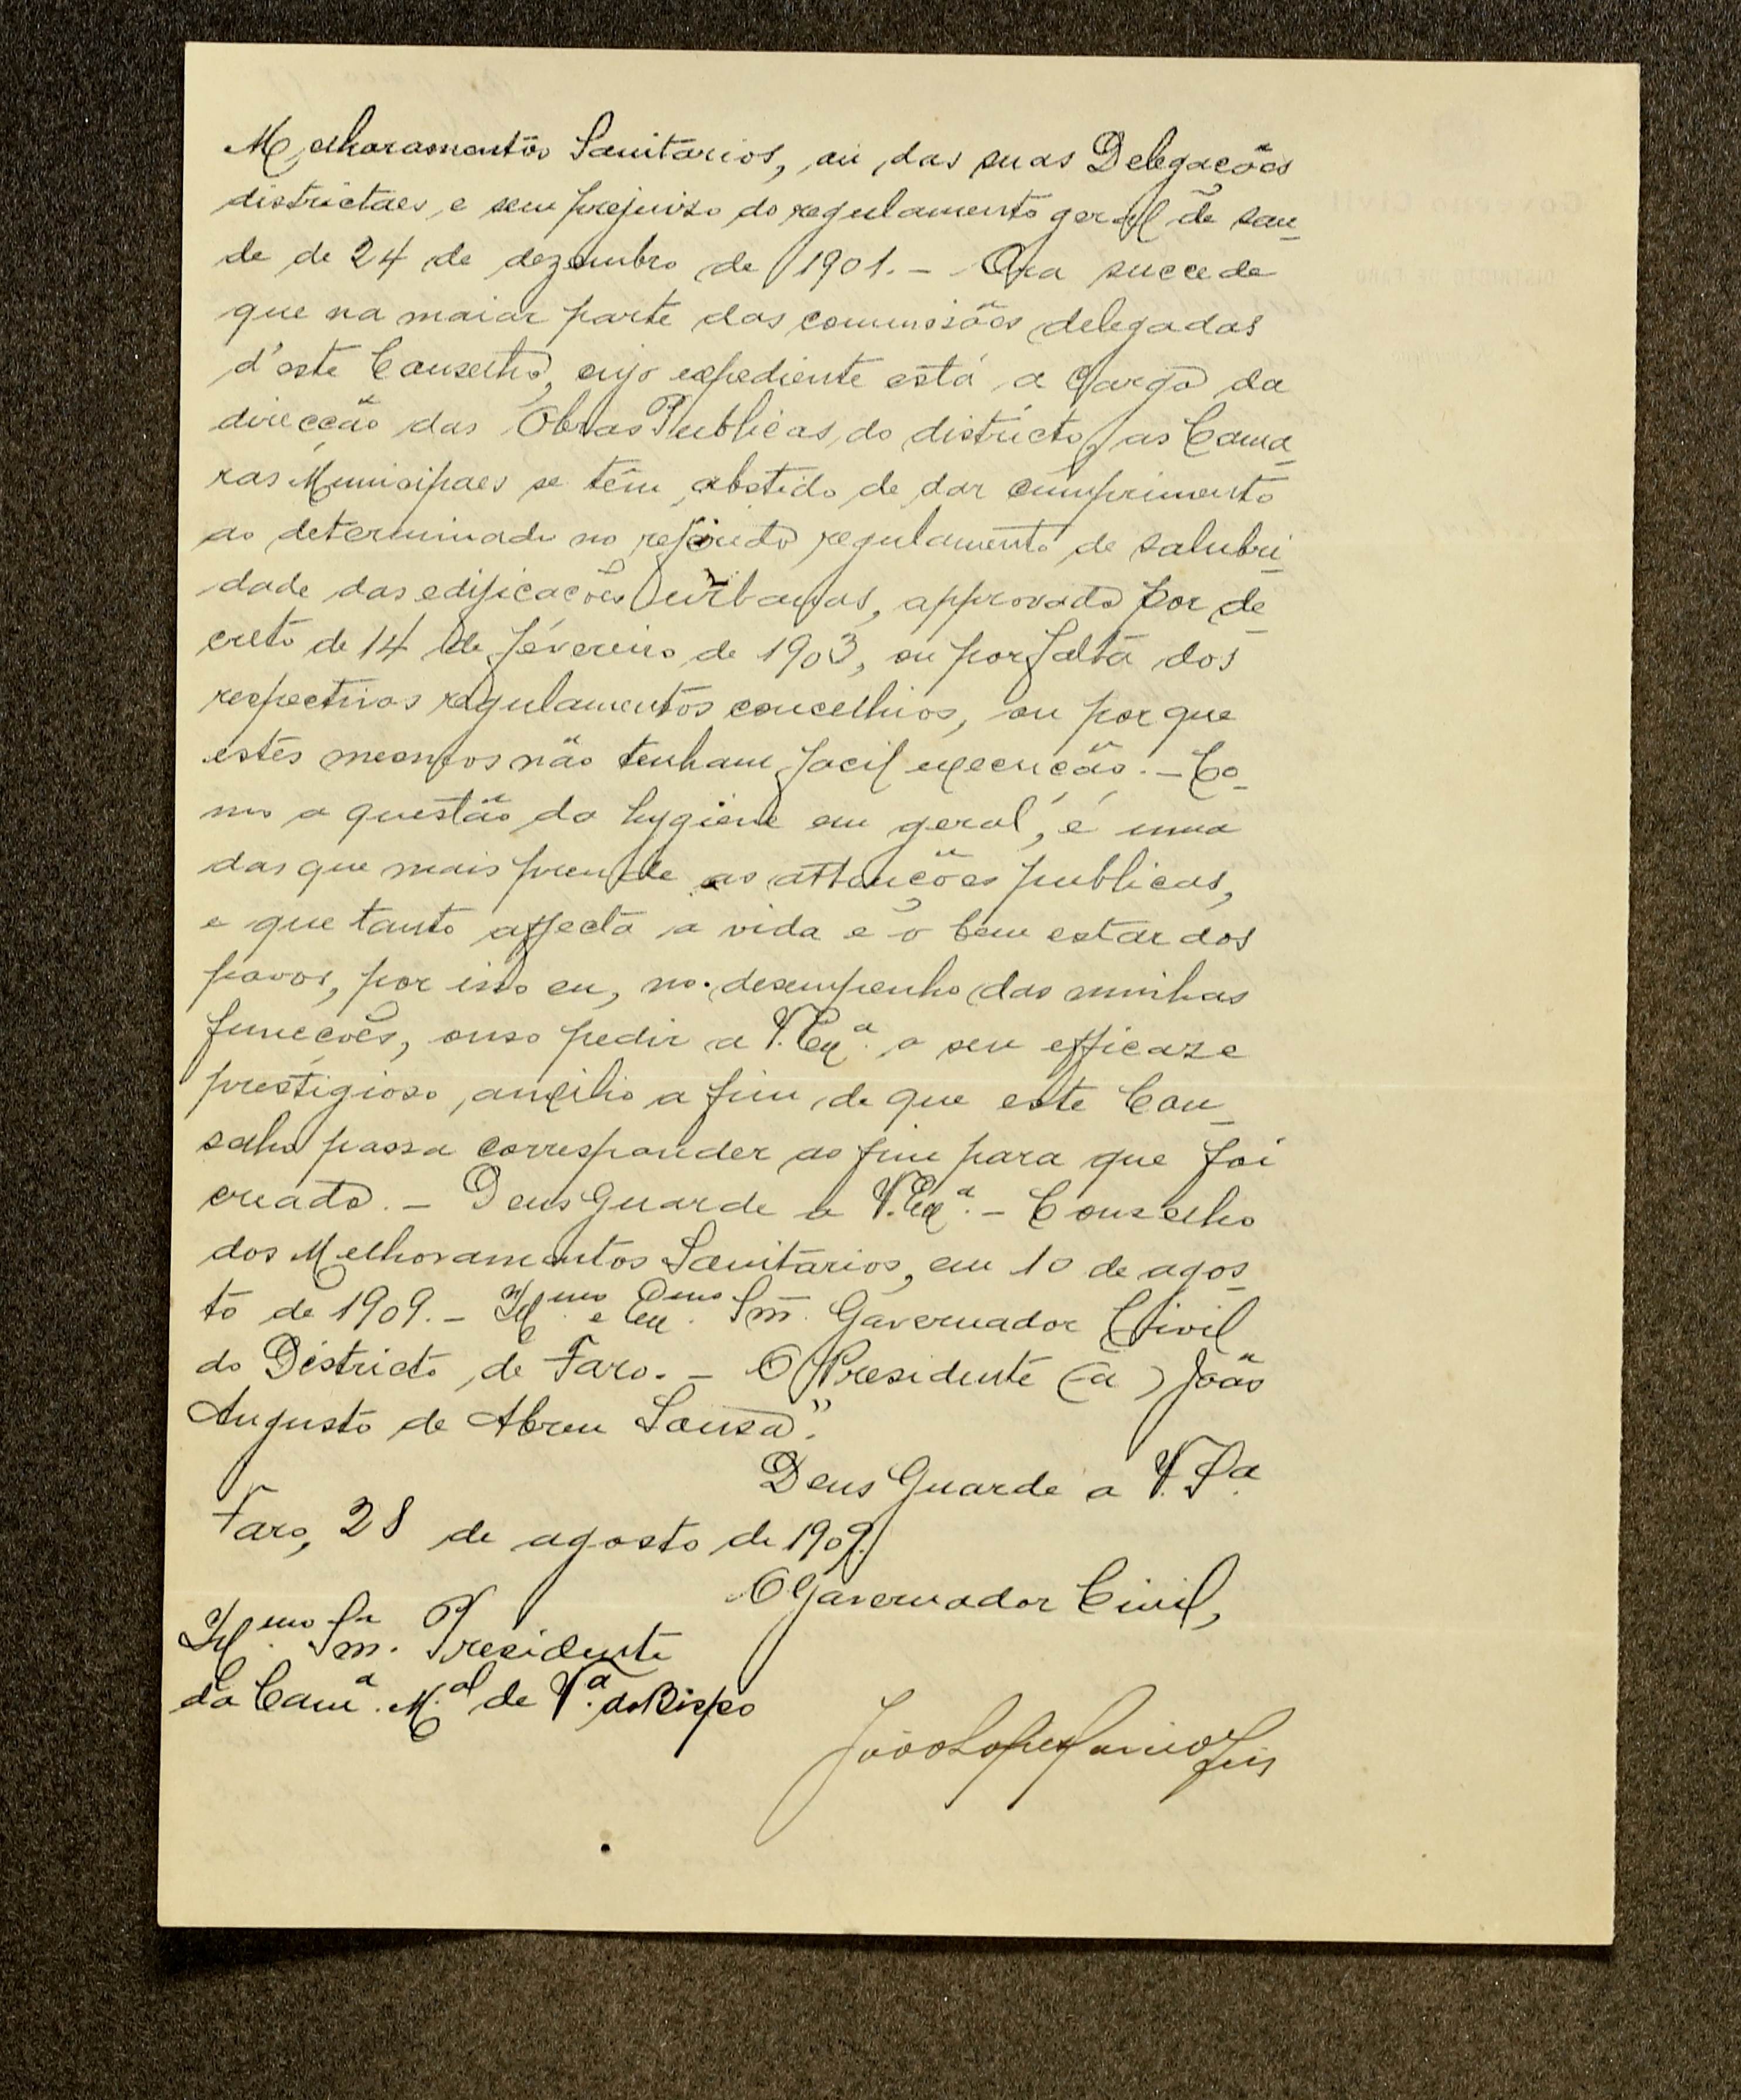 Melhoramentos Sanitarios, ou das suas Delegações
districtaes, e sem prejuizo do regulamento geral de sau-
de de 24 de dezembro de 1901. - Ora succede
que na maior parte das commisões delegadas
d'este Conselho, cujo expediente está a cargo da
direcção das Obras Publicas do districto, as Cama-
ras Municipaes se têm abstido de dar cumprimento
ao determinado no referido regulamento de salubri-
dade das edificações urbanas, approvado por de-
creto de 14 de fevereiro de 1903, ou por falta dos
respectivos regulamentos concelhios, ou por que
estes mesmos não tenham facil execução. - Co-
mo a questão da hygiene em geral, é uma
das que mais prende as attenções publicas,
e que tanto affecta a vida e o bem estar dos
povos, por isso eu, no desempenho das minhas
funcções, ouso pedir a V. Exª. o seu efficaz e
prestigioso auxilio a fim de que este Con-
selho possa corresponder ao fim para que foi
creado. - Deus Guarde a V. Exª. - Conselho
dos Melhoramentos Sanitarios, em 10 de agos-
to de 1909. - Illmo. e Exmo. Snr. Governador Civil
do Districto de Faro. - O Presidente (a) João
Augusto de Abreu Sousa".
Deus Guarde a V. Sa.
Faro, 28 de agosto de 1909.
O Governador Civil,
Illmo. Snr. Presidente
da Camª. M.al de Vª. do Bispo
João Lopes